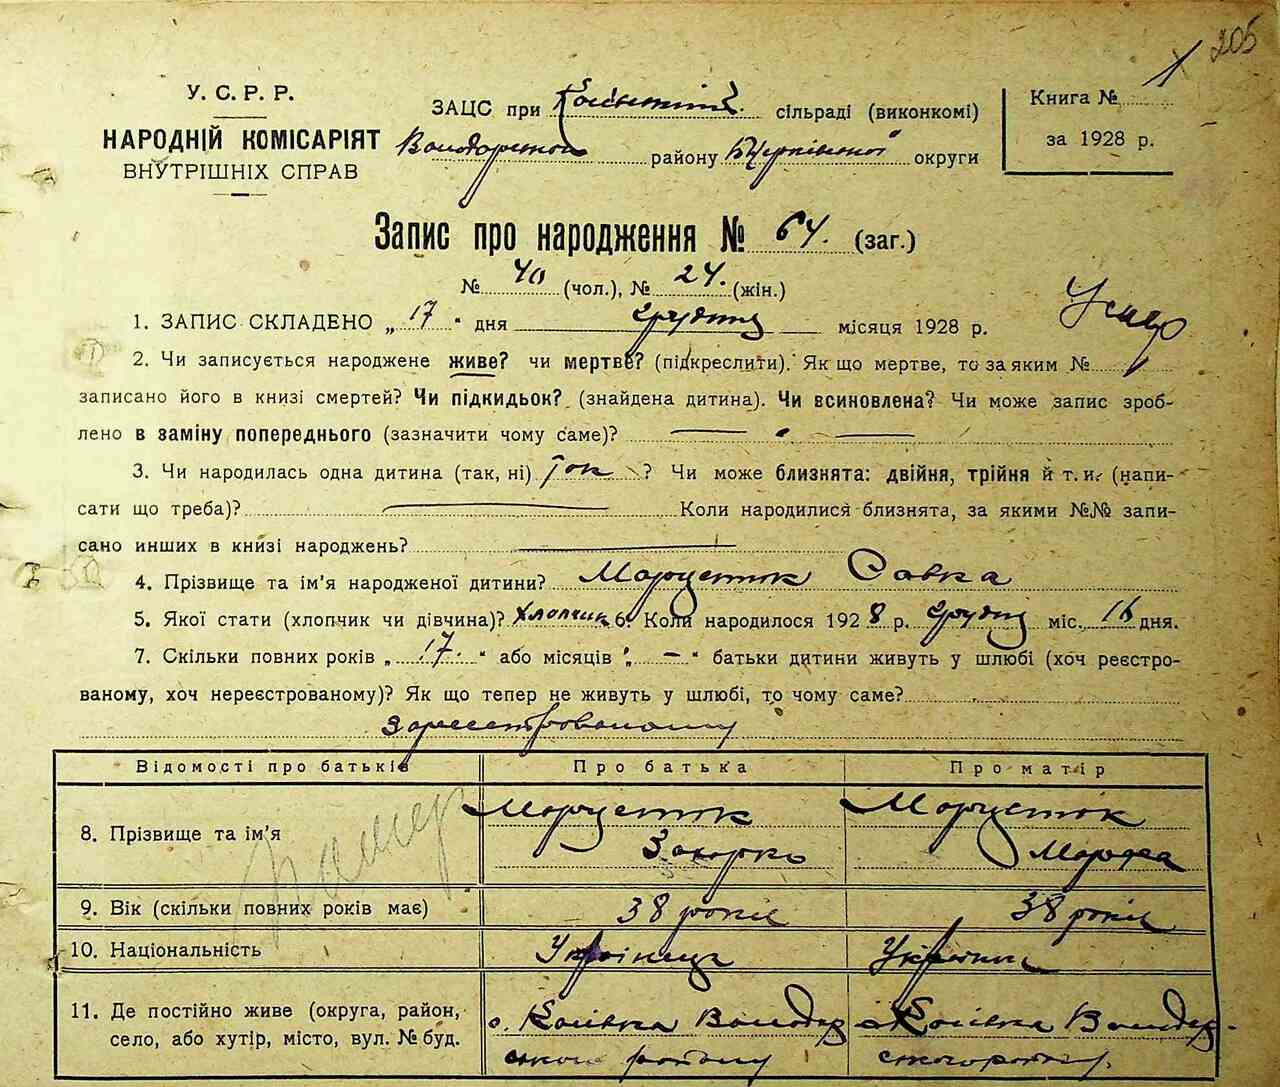 205
У. С. Р. Р.
НАРОДНІЙ КОМІСАРІЯТ
ВНУТРІШНІХ СПРАВ
ЗАЦС при сільраді (виконкомі)
Володарського району Б/Церківської округи
Книга №
за 1928 р.
Запис про народження № 64. (заг.)
№ 40 (чол.), № 24. (жін.)
Умер
1. ЗАПИС СКЛАДЕНО „ 17 “ дня грудня місяця 1928 р.
2. Чи записується народжене живе? чи мертве? (підкреслити). Як що мертве, то за яким №
записано його в книзі смертей? Чи підкидьок? (знайдена дитина). Чи всиновлена? Чи може запис зроб-
лено в заміну попереднього (зазначити чому саме)?
3. Чи народилась одна дитина (так, ні) так ? Чи може близнята: двійня, трійня й т. и. (напи-
сати що треба)? Коли народилися близнята, за якими №№ запи-
сано инших в книзі народжень?
4. Прізвище та ім'я народженої дитини? Марценюк Савка
5. Якої стати (хлопчик чи дівчина)? хлопчик 6. Коли народилося 1928 р. грудня міс. 16 дня.
7. Скільки повних років „ 17. “ або місяців „ — “ батьки дитини живуть у шлюбі (хоч реєстро-
ваному, хоч нереєстрованому)? Як що тепер не живуть у шлюбі, то чому саме?
зареєстрованому
Відомості про батьків Про батька Про матір
8. Прізвище та ім'я Марценюк Захарко Марценюк Марфа
9. Вік (скільки повних років має) 38 років 38 років
10. Національність Українець Українка
11. Де постійно живе (округа, район, село, або хутір, місто, вул. № буд. с. Володар ського району с. Володар- ського району